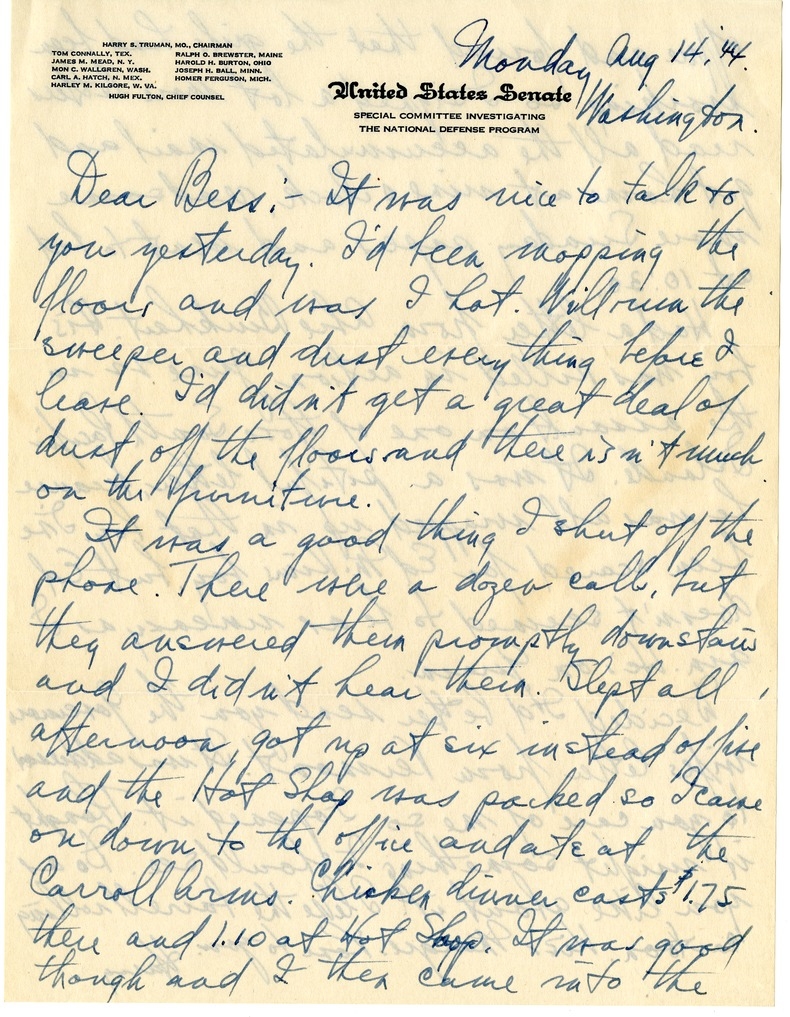 HARRY S. TRUMAN, MO., CHAIRMAN
TOM CONNALLY, TEX. RALPH O. BREWSTER, MAINE
JAMES M. MEAD, N. Y. HAROLD H. BURTON, OHIO
MON C. WALLGREN, WASH. JOSEPH H. BALL, MINN.
CARL A. HATCH, N. MEX. HOMER FERGUSON, MICH.
HARLEY M. KILGORE, W. VA.
HUGH FULTON, CHIEF COUNSEL
United States Senate
SPECIAL COMMITTEE INVESTIGATING
THE NATIONAL DEFENSE PROGRAM
Monday, Aug 14, '44.
Washington.
Dear Bess:- It was nice to talk to
you yesterday. I'd been mopping the
floors and was I hot. Will run the
sweeper and dust everything before I
leave. I'd didn't get a great deal of
dust off the floors and there isn't much
on the furniture.
It was a good thing I shut off the
phone. There were a dozen calls, but
they answered them promptly downstairs
and I didn't hear them. Slept all
afternoon, got up at six instead of five
and the Hot Shop was packed so I came
on down to the office and ate at the
Carroll Arms. Chicken dinner costs $1.75
there and 1.10 at Hot Shop. It was good
though and I then came into the